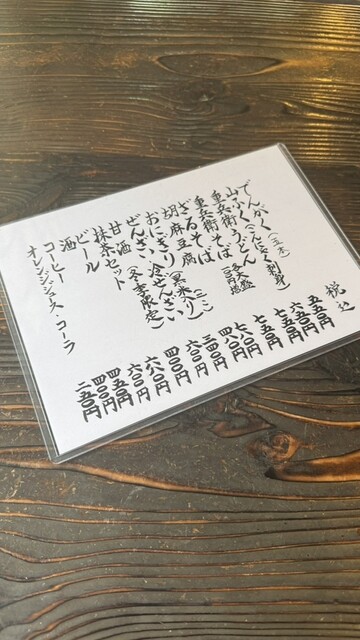 税込
でんがく(三本) 五五〇円
山ふぐ(こんにゃく刺身) 五五〇円
重兵衛うどん 大盛百円増 七五〇円
重兵衛そば 七五〇円
ざるそば 七〇〇円
胡麻豆腐 四〇〇円
おにぎり(黒米入り)(二ヶ) 三〇〇円
ぜんざい 冷ぜんざい 六〇〇円
甘酒(冬季限定) 四〇〇円
抹茶セット 六〇〇円
ビール 六〇〇円
酒 四五〇円
コーヒー 四〇〇円
オレンジジュース・コーラ 二五〇円